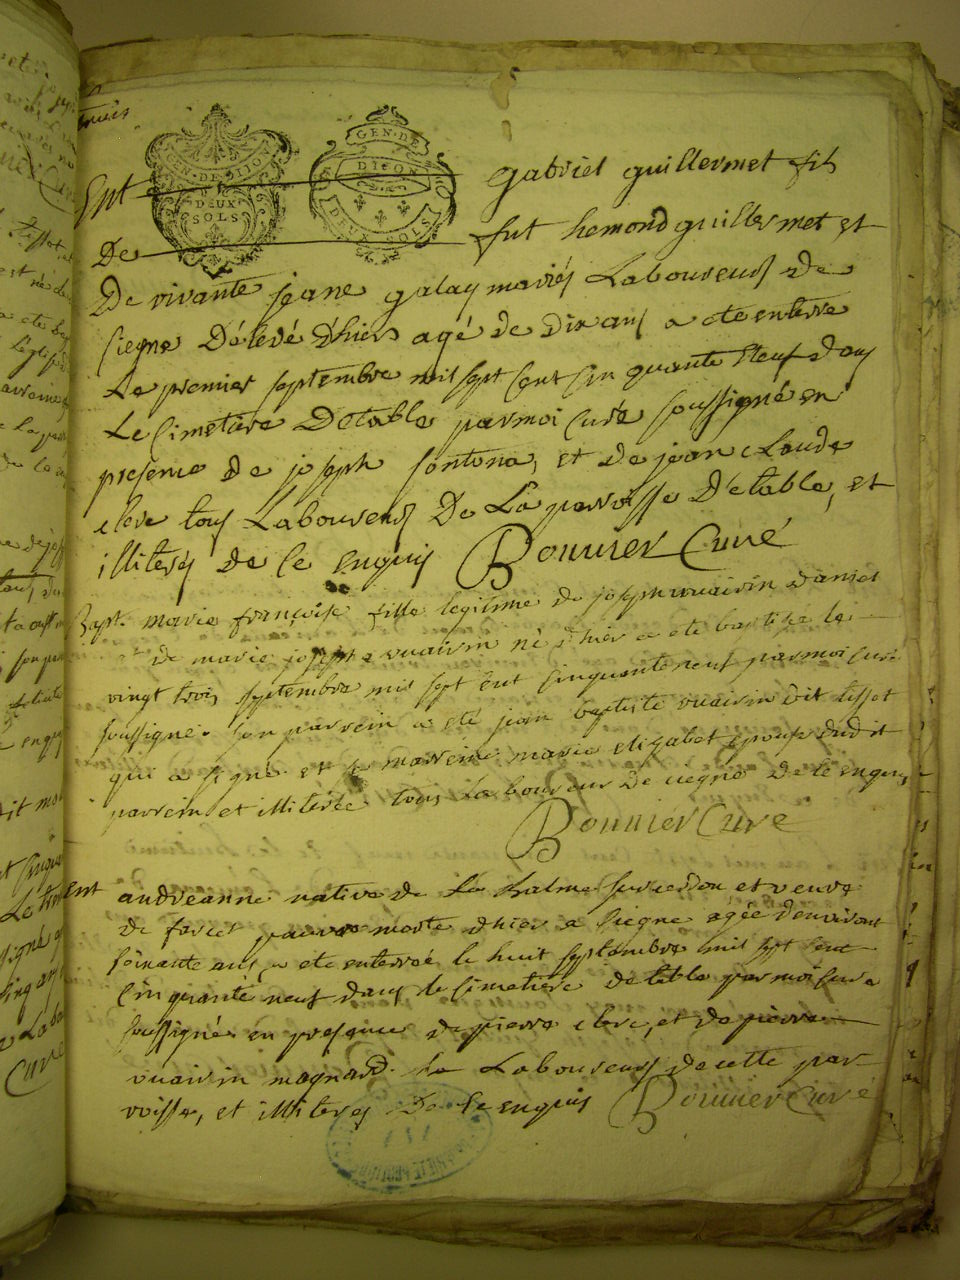 GEN · DE · DIJON
DEUX
SOLS
GEN · DE
DIJON
DEUX SOLS
Ent gabriel guillermet fils
De fut hemond guillermet et
De vivante jeane galay mariés Laboureurs de
siegne Décedé d'hiers agé de dix ans a ete enterre
Le premier septembre mil sept cent cinquante neuf dans
Le Cimetiere Detable parmoi curé soussigné en
presence de joseph fontona, et de jean claude
clere tous Laboureurs De La parroisse D'etable, et
illiterés de ce enquis Bonnier Curé
Bapt. marie françoise fille legitime de joseph vuairin daniel
et de marie josephe vuairin né d'hier a eté baptisé le
vingt trois septembre mil sept cent cinquante neuf parmoi curé
soussigné. son parrein a eté jean baptiste vuairin dit tissot
qui a signé et la marreine marie elizabet epouse dudit
parrein et illiterée tous Laboureur De ciegne de ce enquis
Bonnier Curé
Ent andréanne native de La balme sur cerdon et veuve
de pauvre morte d'hier a siegne agée denviront
soixante ans, a ete enterrée le huit septembre mil sept cent
cinquante neuf dans le cimetiere detable par moi curé
soussigné en presence de pierre clere, et de pierre
vuairin magnard Laboureurs de cette par
roisse, et illiterés De ce enquis Bonnier Curé